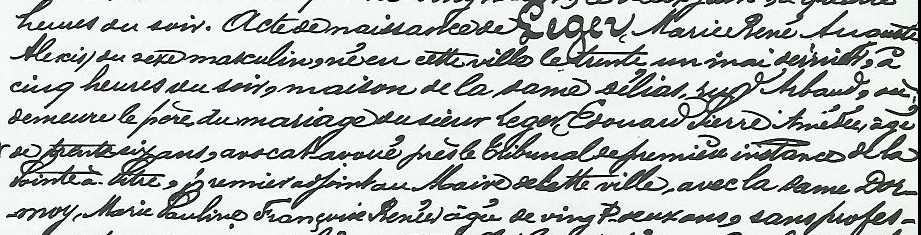 heures du soir. Acte de naissance de Leger, Marie René Auguste
Alexis, du sexe masculin, né en cette ville le trente un mai dernier, à
cinq heures du soir, maison de la dame Délias, rue d'Arbaud, où
demeure le père, du mariage du sieur Leger, Edouard Pierre Amédée, âgé
de trente six ans, avocat avoué près le tribunal de première instance de la
Pointe à Pitre, premier adjoint au Maire de cette ville, avec la dame Dor-
-moy, Marie Pauline Françoise Renée, âgée de vingt-deux ans, sans profes-